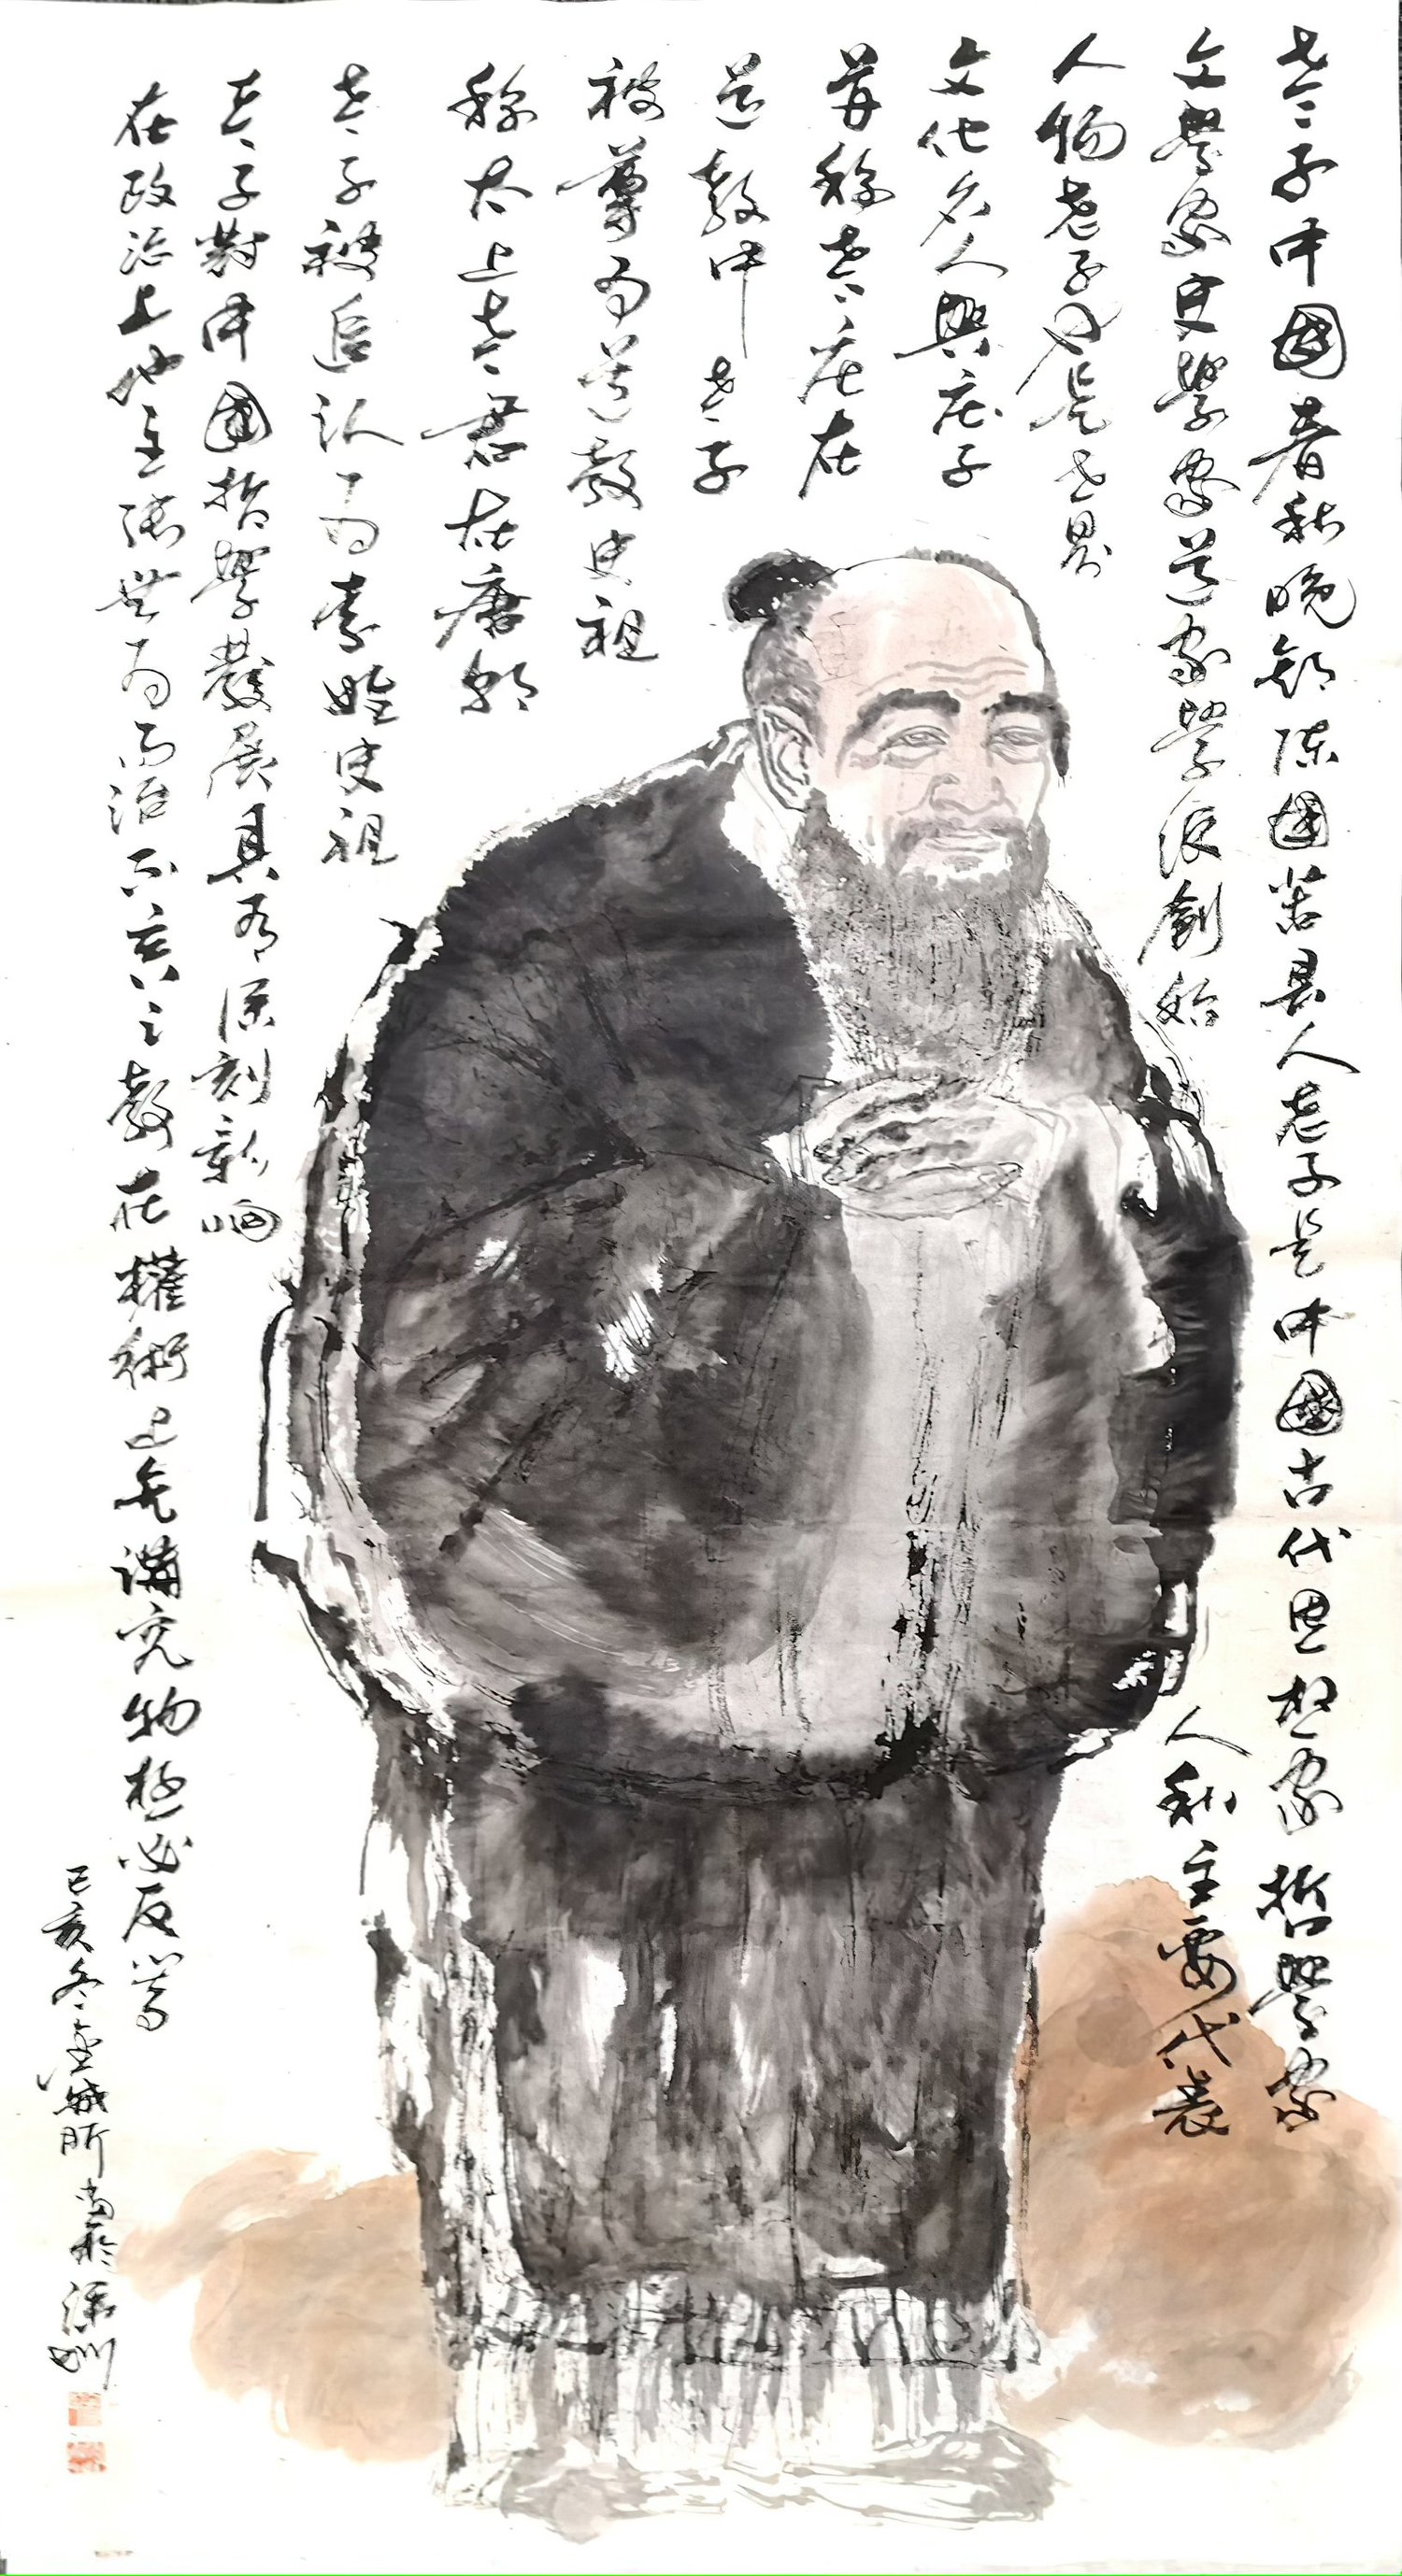 老子中國春秋晚期陈國苦县人老子是中國古代思想家哲學家
文學家史學家道家學派創始
人和主要代表
人物老子也是世界
文化名人與庄子
并称老庄在
道教中老子
被尊为道教史祖
称太上老君在唐朝
老子被追认为李姓史祖
老子對中國哲學發展具有深刻影响
在政治上他主张無为而治不言之教在權術上先講究物极必反
己亥冬金城昕尚於深圳